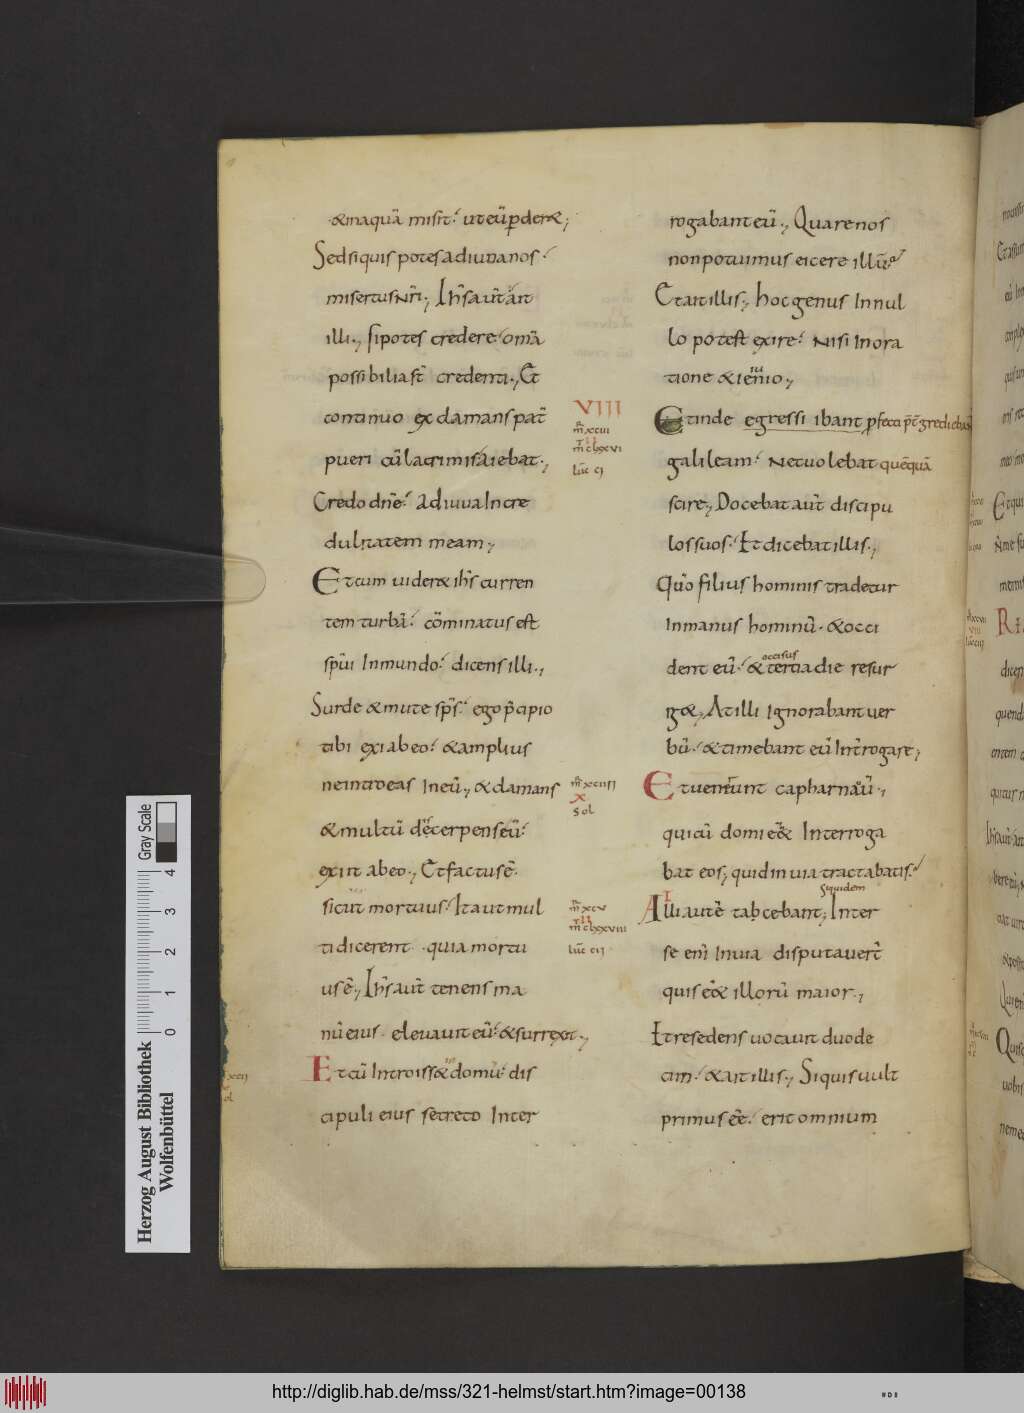 &inaquā misit· ut eū p̄der&;
Sed si quis potes adiuva nos·
misertus nr̄i; Ih̄s aut̄ ait
illi·, si potes credere· om̄a
possibilia st̄ credenti·, Et
continuo exclamans pat̄
pueri cū lacrimis aiebat·,
Credo dn̄e· adiuva incre
dulitatem meam;
Et cum vider& ih̄s curren
tem turbā· cōminatus est
sp̄ui inmundo· dicens illi·,
Surde & mute sp̄s· ego p̄cipio
tibi exi ab eo· & amplius
ne introeas in eū; & clamans
& multū discerpens eū·
exiit ab eo·, Et factus ē·
sicut mortuus· Ita ut mul
ti dicerent· quia mortu
us ē; Ih̄s aut̄ tenens ma
nū eius· elevavit eū· & surrexit·,
Et cū introiss& in domū· dis
cipuli eius secreto Inter
VIII
m̄ xciii
m̄ clxxvi
luc̄ ci
m̄ xciiii
X
Sol
m̄ xcv
m̄ clxxviii
luc̄ cii
rogabant eū·, Quare nos
non potuimus eicere illū·
Et ait illis·, hoc genus In nul
lo potest exire· nisi In ora
tione & ieiunio·,
Et inde egressi ibant p̄fecti p̄t̄gredieba
galileam· Nec volebat quēquā
scire; Docebat aut̄ discipu
los suos· Et dicebat illis·,
Quō filius hominis tradetur
In manus hominū· & occi
dent eū· & occisus tertia die resur
g&; At illi Ignorabant ver
bū· & timebant eū Int̄rogare;
Et venerunt capharnaū·,
qui cū domi ess& Interroga
bat eos; quid in via tractabatis·
At illi autē tacebant; siquidem Inter
se eni In via disputaver̄t
quis ee& illorū maior·,
Et resedens vocavit duode
cim· & ait illis·, Si quis vult
primus eē· erit omnium
Herzog August Bibliothek
Wolfenbüttel
Gray Scale
0 1 2 3 4
http://diglib.hab.de/mss/321-helmst/start.htm?image=00138